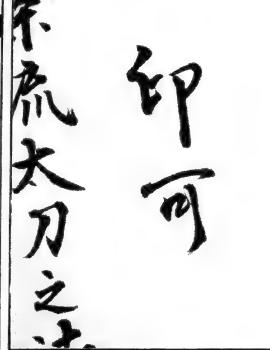 印可
流太刀之